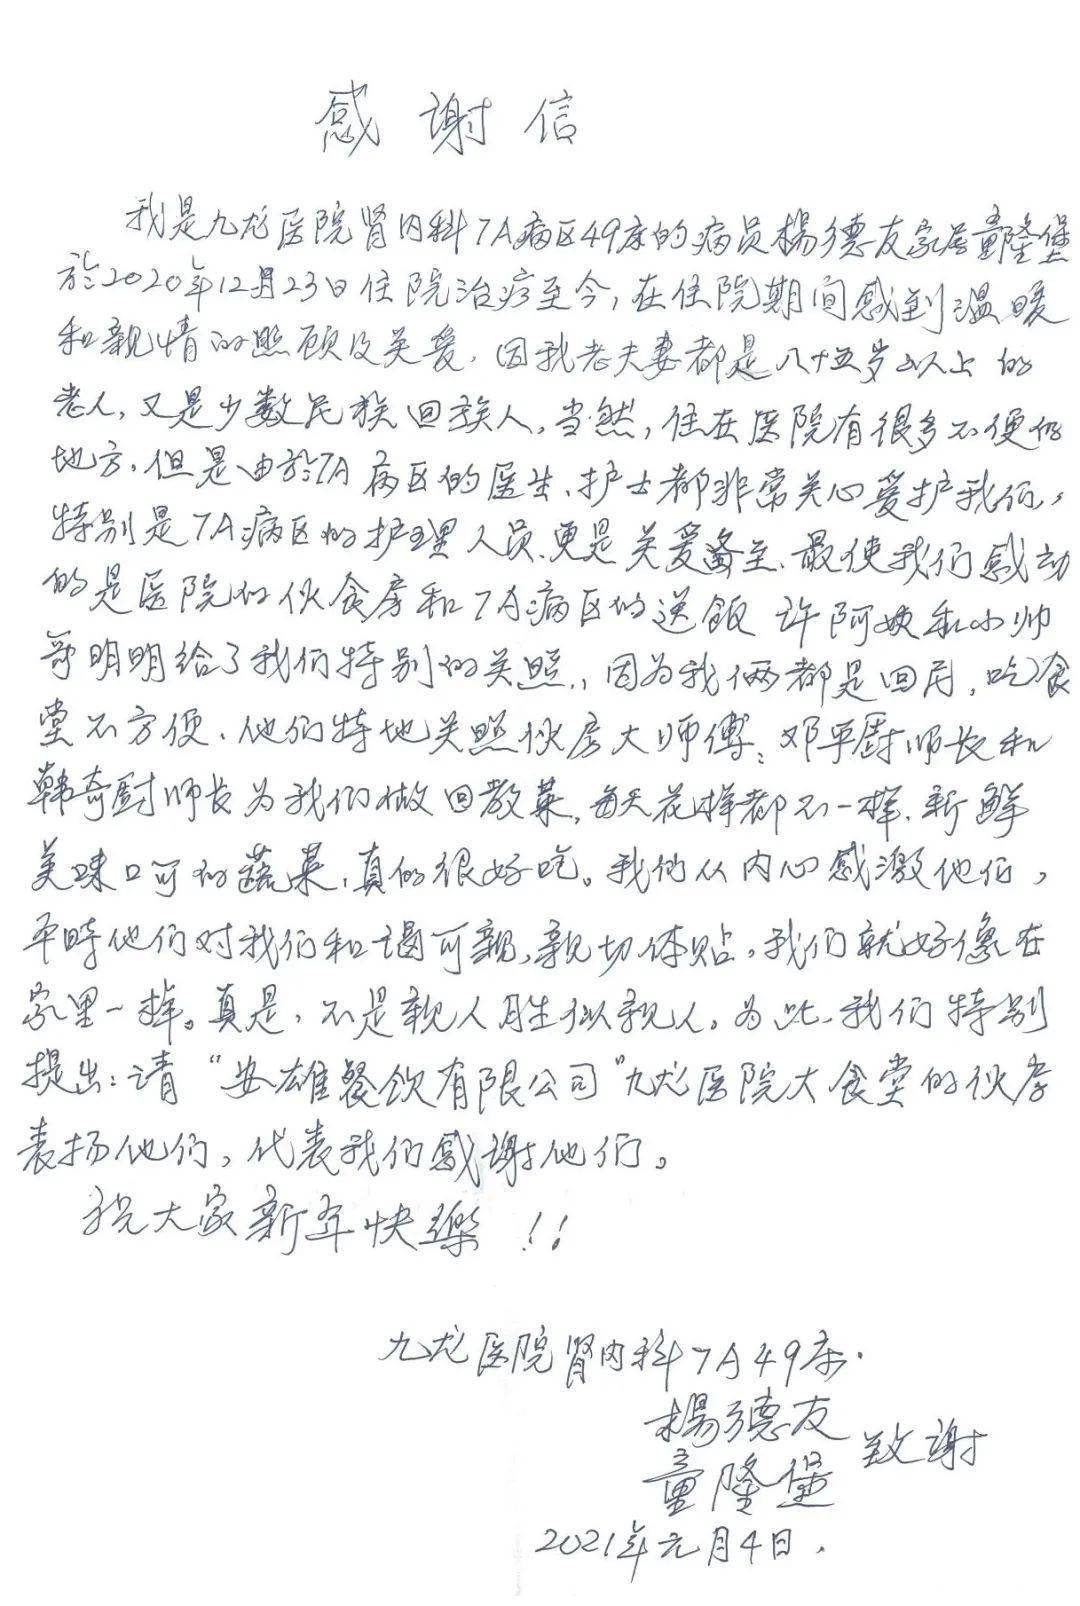 感谢信
我是九龙医院肾内科7A病区49床的病员楊德友家居童隆堡
於2020年12月23日住院治疗至今,在住院期间感到温暖
和親情的照顾及关爱.因我老夫妻都是八十五岁以上的
老人,又是少数民族回族人。当然,住在医院有很多不便的
地方.但是由於7A病区的医生、护士都非常关心爱护我们,
特别是7A病区的护理人员、更是关爱备至、最使我们感动
的是医院的伙食房和7A病区的送饭许阿姨和小帅
哥明明给了我们特别的关照.,因为我俩都是回民,吃食
堂不方便、他们特地关照伙房大师傅:邓平厨师长和
韩奇厨师长为我们做回教菜,每天花样都不一样.新鲜
美味口可的蔬菜,真的很好吃。我们从内心感激他们,
平時他们对我们和谒可親,親切体贴,我们就好像在
家里一样。真是,不是親人胜似親人。为此、我们特别
提出:请“安雄餐饮有限公司”九龙医院大食堂的伙房
表扬他们,代表我们感谢他们。
祝大家新年快樂!!
九龙医院肾内科7A49床.
楊德友
童隆堡 致谢
2021年元月4日.